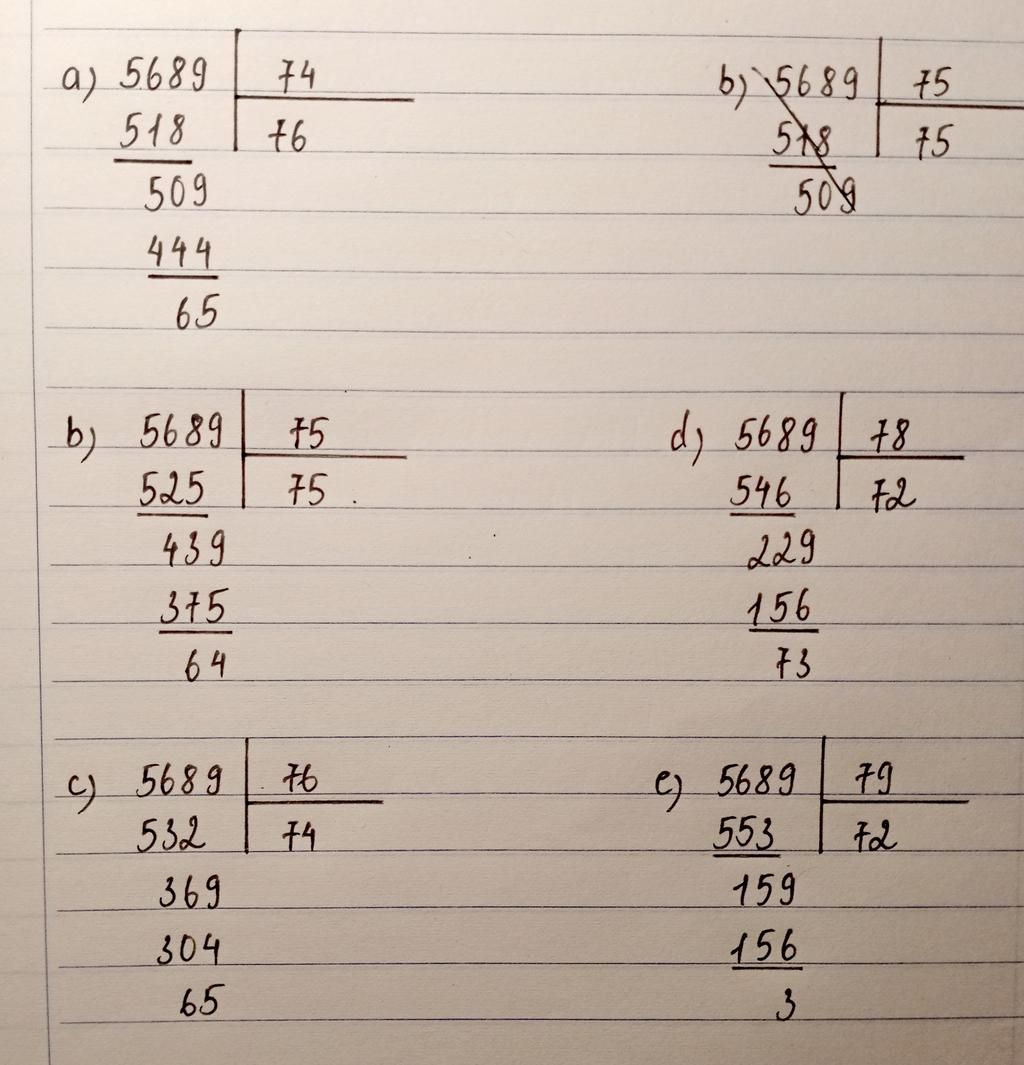 a) 5689 74
518 76
509
444
65
b) 5689 75
518 75
509
b) 5689 75
525 75
439
375
64
d) 5689 78
546 72
229
156
73
c) 5689 76
532 74
369
304
65
e) 5689 79
553 72
159
156
3